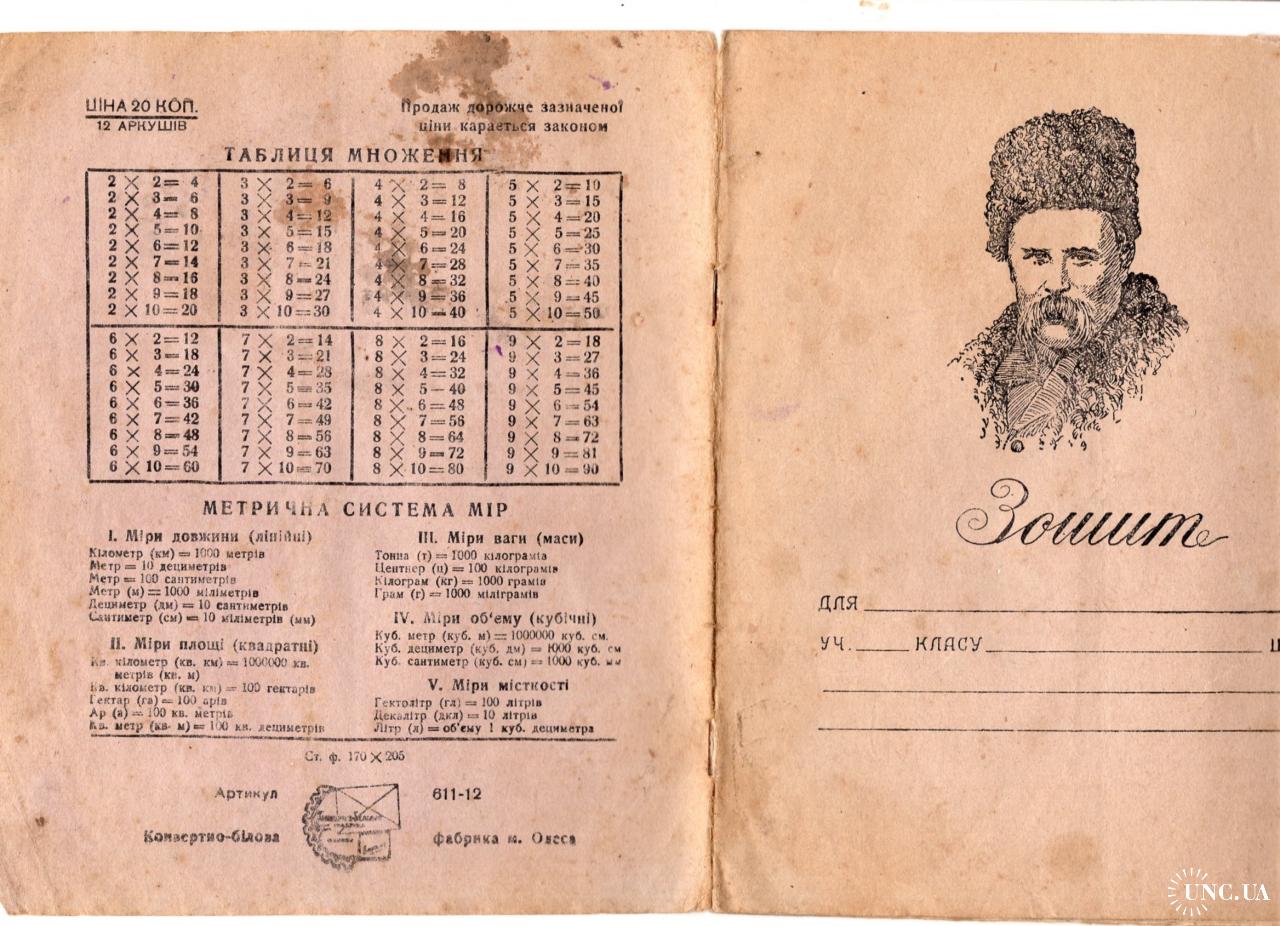 ЦІНА 20 КОП.
12 АРКУШІВ
Продаж дорожче зазначеної
ціни карається законом
ТАБЛИЦЯ МНОЖЕННЯ
2 × 2 = 4 3 × 2 = 6 4 × 2 = 8 5 × 2 = 10
2 × 3 = 6 3 × 3 = 9 4 × 3 = 12 5 × 3 = 15
2 × 4 = 8 3 × 4 = 12 4 × 4 = 16 5 × 4 = 20
2 × 5 = 10 3 × 5 = 15 4 × 5 = 20 5 × 5 = 25
2 × 6 = 12 3 × 6 = 18 4 × 6 = 24 5 × 6 = 30
2 × 7 = 14 3 × 7 = 21 4 × 7 = 28 5 × 7 = 35
2 × 8 = 16 3 × 8 = 24 4 × 8 = 32 5 × 8 = 40
2 × 9 = 18 3 × 9 = 27 4 × 9 = 36 5 × 9 = 45
2 × 10 = 20 3 × 10 = 30 4 × 10 = 40 5 × 10 = 50
6 × 2 = 12 7 × 2 = 14 8 × 2 = 16 9 × 2 = 18
6 × 3 = 18 7 × 3 = 21 8 × 3 = 24 9 × 3 = 27
6 × 4 = 24 7 × 4 = 28 8 × 4 = 32 9 × 4 = 36
6 × 5 = 30 7 × 5 = 35 8 × 5 = 40 9 × 5 = 45
6 × 6 = 36 7 × 6 = 42 8 × 6 = 48 9 × 6 = 54
6 × 7 = 42 7 × 7 = 49 8 × 7 = 56 9 × 7 = 63
6 × 8 = 48 7 × 8 = 56 8 × 8 = 64 9 × 8 = 72
6 × 9 = 54 7 × 9 = 63 8 × 9 = 72 9 × 9 = 81
6 × 10 = 60 7 × 10 = 70 8 × 10 = 80 9 × 10 = 90
МЕТРИЧНА СИСТЕМА МІР
I. Міри довжини (лінійні)
Кілометр (км) = 1000 метрів
Метр = 10 дециметрів
Метр = 100 сантиметрів
Метр (м) = 1000 міліметрів
Дециметр (дм) = 10 сантиметрів
Сантиметр (см) = 10 міліметрів (мм)
II. Міри площі (квадратні)
Кв. кілометр (кв. км) = 1000000 кв.
метрів (кв. м)
Кв. кілометр (кв. км) = 100 гектарів
Гектар (га) = 100 арів
Ар (а) = 100 кв. метрів
Кв. метр (кв. м) = 100 кв. дециметрів
III. Міри ваги (маси)
Тонна (т) = 1000 кілограмів
Центнер (ц) = 100 кілограмів
Кілограм (кг) = 1000 грамів
Грам (г) = 1000 міліграмів
IV. Міри об'ему (кубічні)
Куб. метр (куб. м) = 1000000 куб. см.
Куб. дециметр (куб. дм) = 1000 куб. см
Куб. сантиметр (куб. см) = 1000 куб. мм
V. Міри місткості
Гектолітр (гл) = 100 літрів
Декалітр (дкл) = 10 літрів
Літр (л) = об'єму 1 куб. дециметра
Ст. ф. 170 × 205
Артикул 611-12
Конвертно-білова фабрика м. Одеса
Зошит
ДЛЯ
УЧ. КЛАСУ
UNC.UA